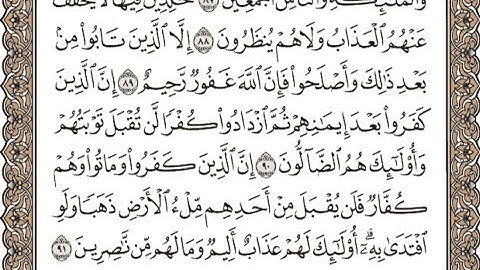 وَٱلْمَلَٰٓئِكَةِ وَٱلنَّاسِ أَجْمَعِينَ ٨٧ خَٰلِدِينَ فِيهَا لَا يُخَفَّفُ
عَنْهُمُ ٱلْعَذَابُ وَلَا هُمْ يُنظَرُونَ ٨٨ إِلَّا ٱلَّذِينَ تَابُوا۟ مِنۢ
بَعْدِ ذَٰلِكَ وَأَصْلَحُوا۟ فَإِنَّ ٱللَّهَ غَفُورٌ رَّحِيمٌ ٨٩ إِنَّ ٱلَّذِينَ
كَفَرُوا۟ بَعْدَ إِيمَٰنِهِمْ ثُمَّ ٱزْدَادُوا۟ كُفْرًا لَّن تُقْبَلَ تَوْبَتُهُمْ
وَأُو۟لَٰٓئِكَ هُمُ ٱلضَّآلُّونَ ٩٠ إِنَّ ٱلَّذِينَ كَفَرُوا۟ وَمَاتُوا۟ وَهُمْ
كُفَّارٌ فَلَن يُقْبَلَ مِنْ أَحَدِهِم مِّلْءُ ٱلْأَرْضِ ذَهَبًا وَلَوِ
ٱفْتَدَىٰ بِهِۦٓ ۗ أُو۟لَٰٓئِكَ لَهُمْ عَذَابٌ أَلِيمٌ وَمَا لَهُم مِّن نَّٰصِرِينَ ٩١